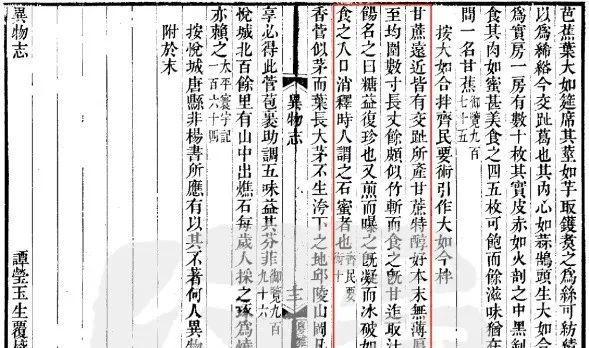 芭蕉葉大如筵席其莖如芋取鑊煑之爲絲可紡績
以爲絺綌今交趾葛也其內心如蒜鵠頭生大如合
爲實房一房有數十枚其實皮赤如火剖之中黑剝
食其肉如蜜甚美食之四五枚可飽而餘滋味猶在
問一名甘蕉御覽九百七十五
按大如合拌齊民要術引作大如今柈
甘蔗遠近皆有交趾所產甘蔗特醇好本末無薄厚
至均圍數寸長丈餘頗似竹斬而食之旣甘迮取汁
餳名之曰糖益復珍也又煎而曝之旣凝而冰破如
食之入口消釋時人謂之石蜜者也齊民要術十
香菅似茅而葉長大茅不生洿下之地邱陵山岡凡
異物志
享必得此菅苞裹助調五味益其芬菲御覽九百九十六
悅城北百餘里有山中出燋石每歲人採之琢爲燒
亦賴之太平寰宇記一百六十四
按悅城唐縣非楊書所應有以其不著何人異物
附於末
異物志
譚瑩玉生覆校